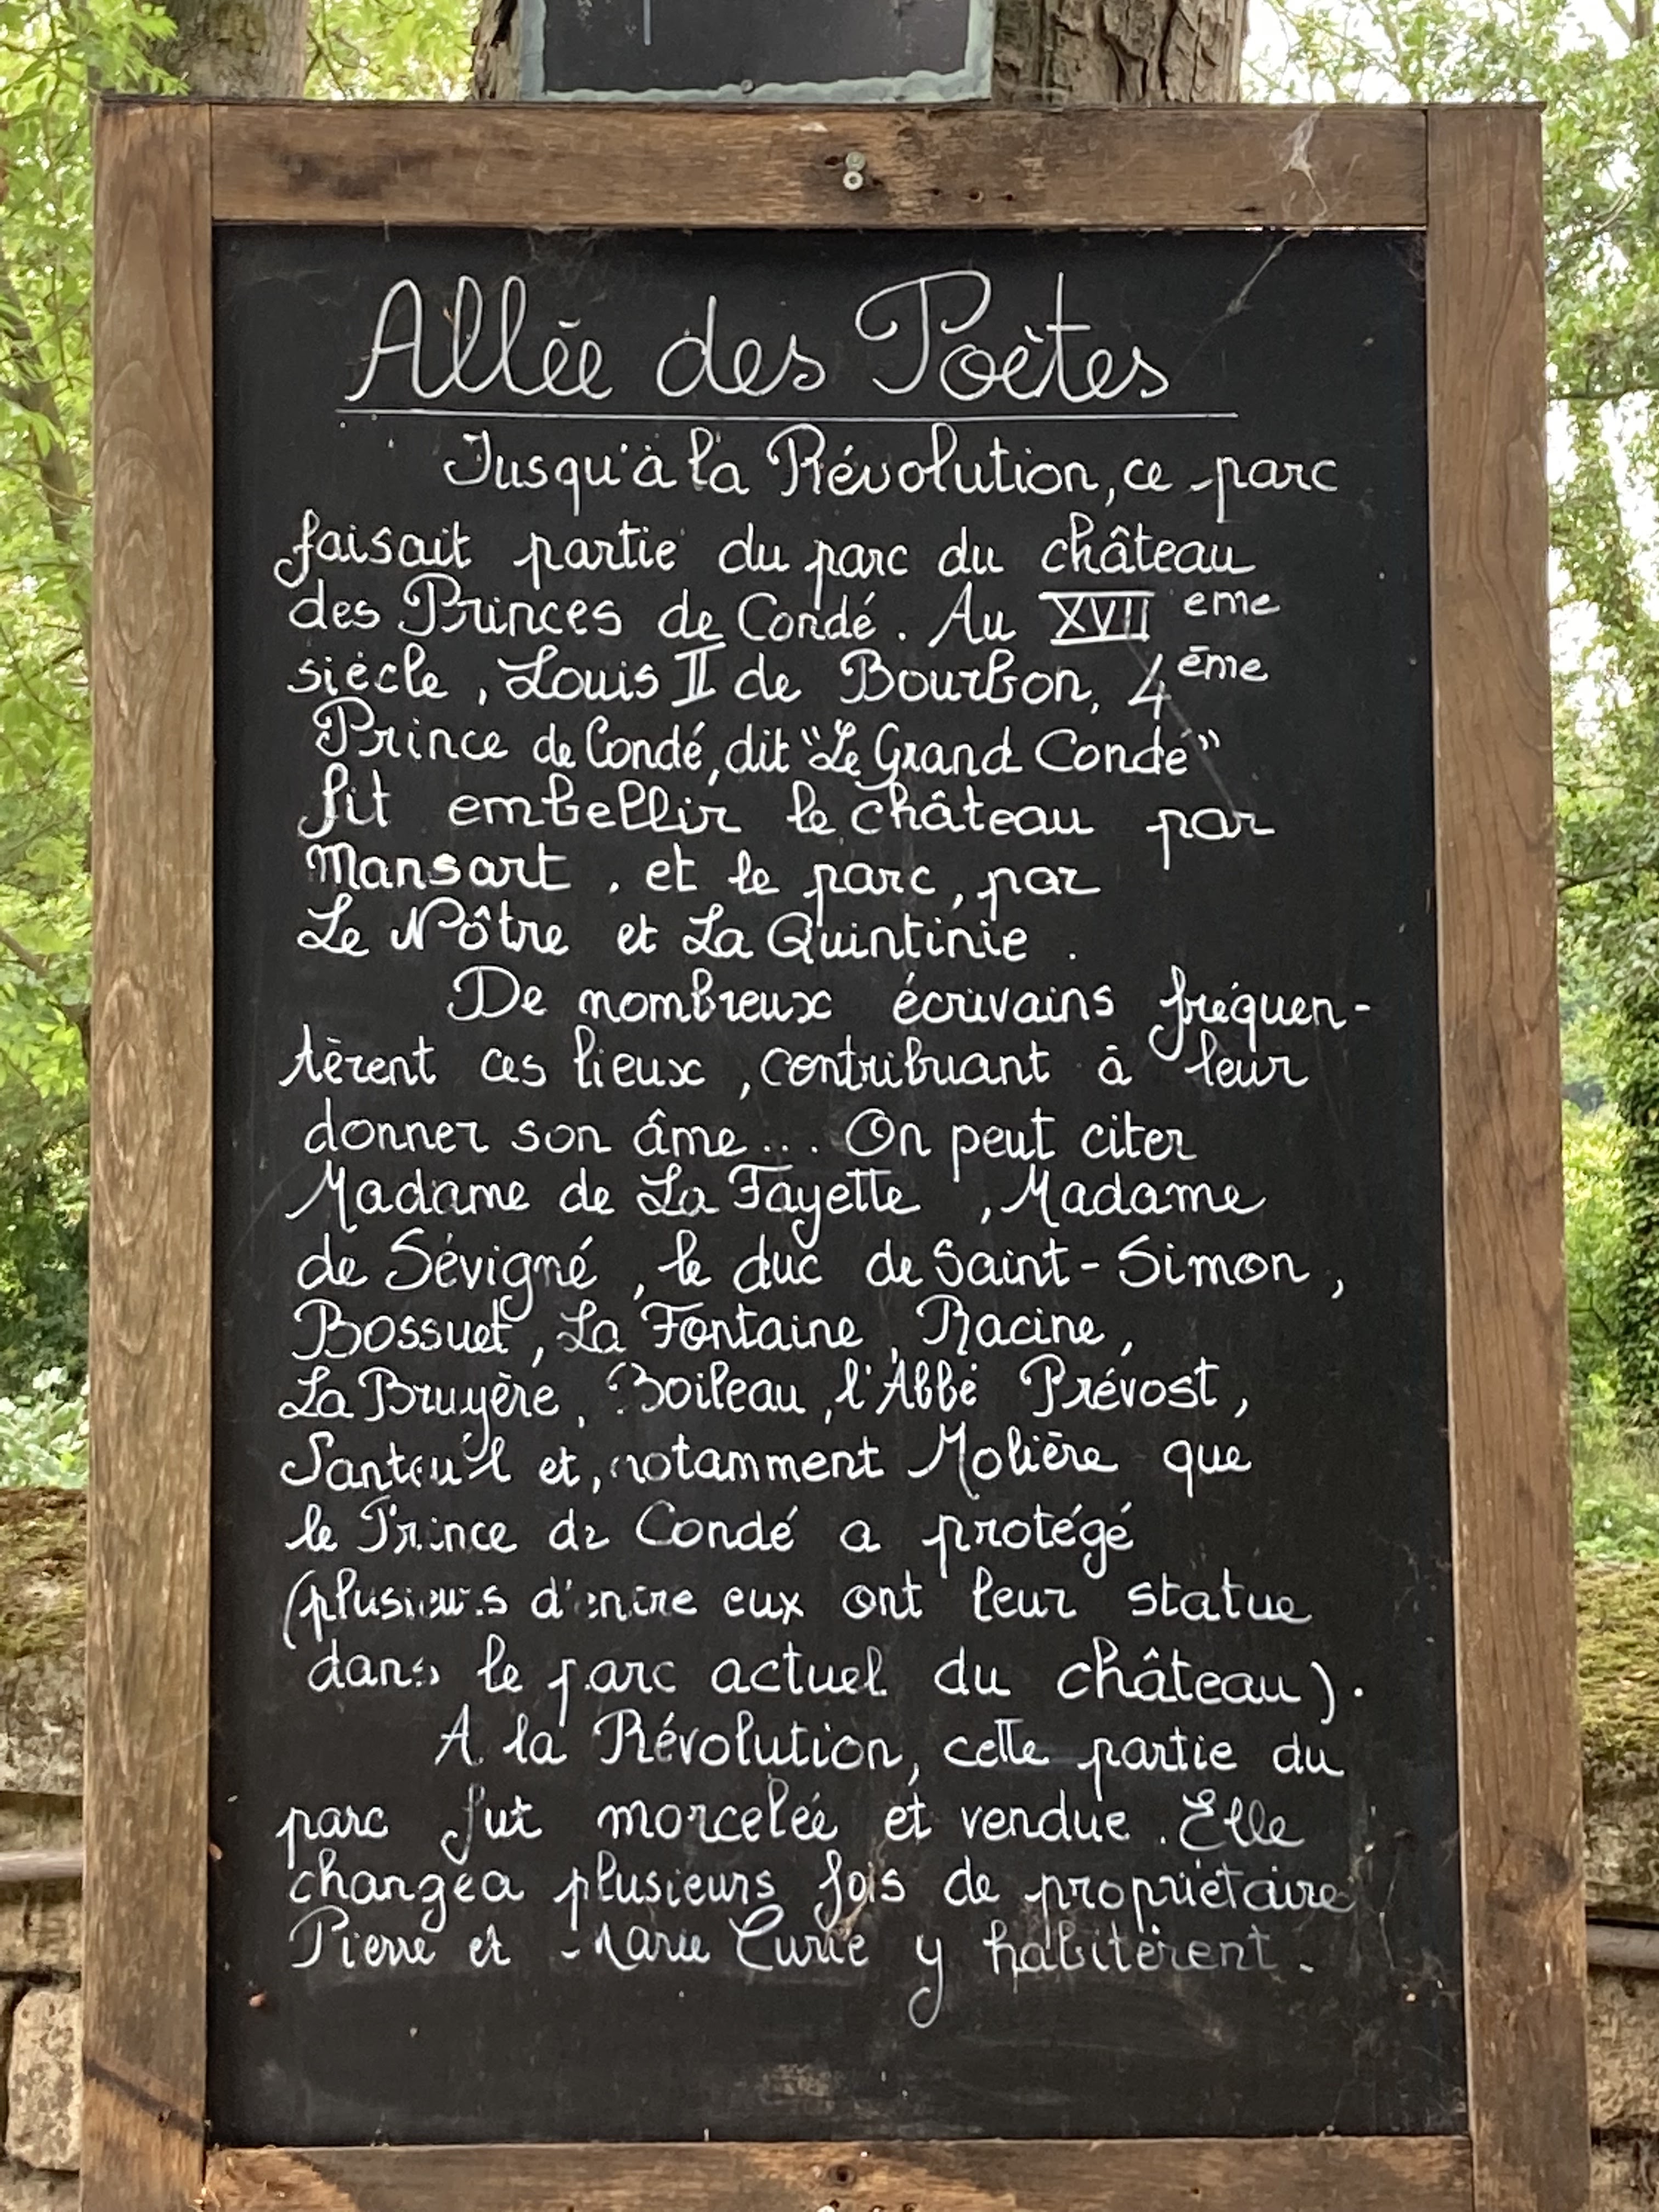 Allée des Poètes
Jusqu'à la Révolution, ce parc
faisait partie du parc du château
des Princes de Condé. Au XVII eme
siècle, Louis II de Bourbon, 4ème
Prince de Condé, dit "Le Grand Condé"
fit embellir le château par
Mansart, et le parc, par
Le Nôtre et La Quintinie.
De nombreux écrivains fréquen-
tèrent ces lieux, contribuant à leur
donner son âme... On peut citer
Madame de La Fayette, Madame
de Sévigné, le duc de Saint-Simon,
Bossuet, La Fontaine, Racine,
La Bruyère, Boileau, l'Abbé Prévost,
Santeuil et, notamment Molière que
le Prince de Condé a protégé
(plusieurs d'entre eux ont leur statue
dans le parc actuel du château).
A la Révolution, cette partie du
parc fut morcelée et vendue. Elle
changea plusieurs fois de propriétaire
Pierre et Marie Curie y habitèrent.